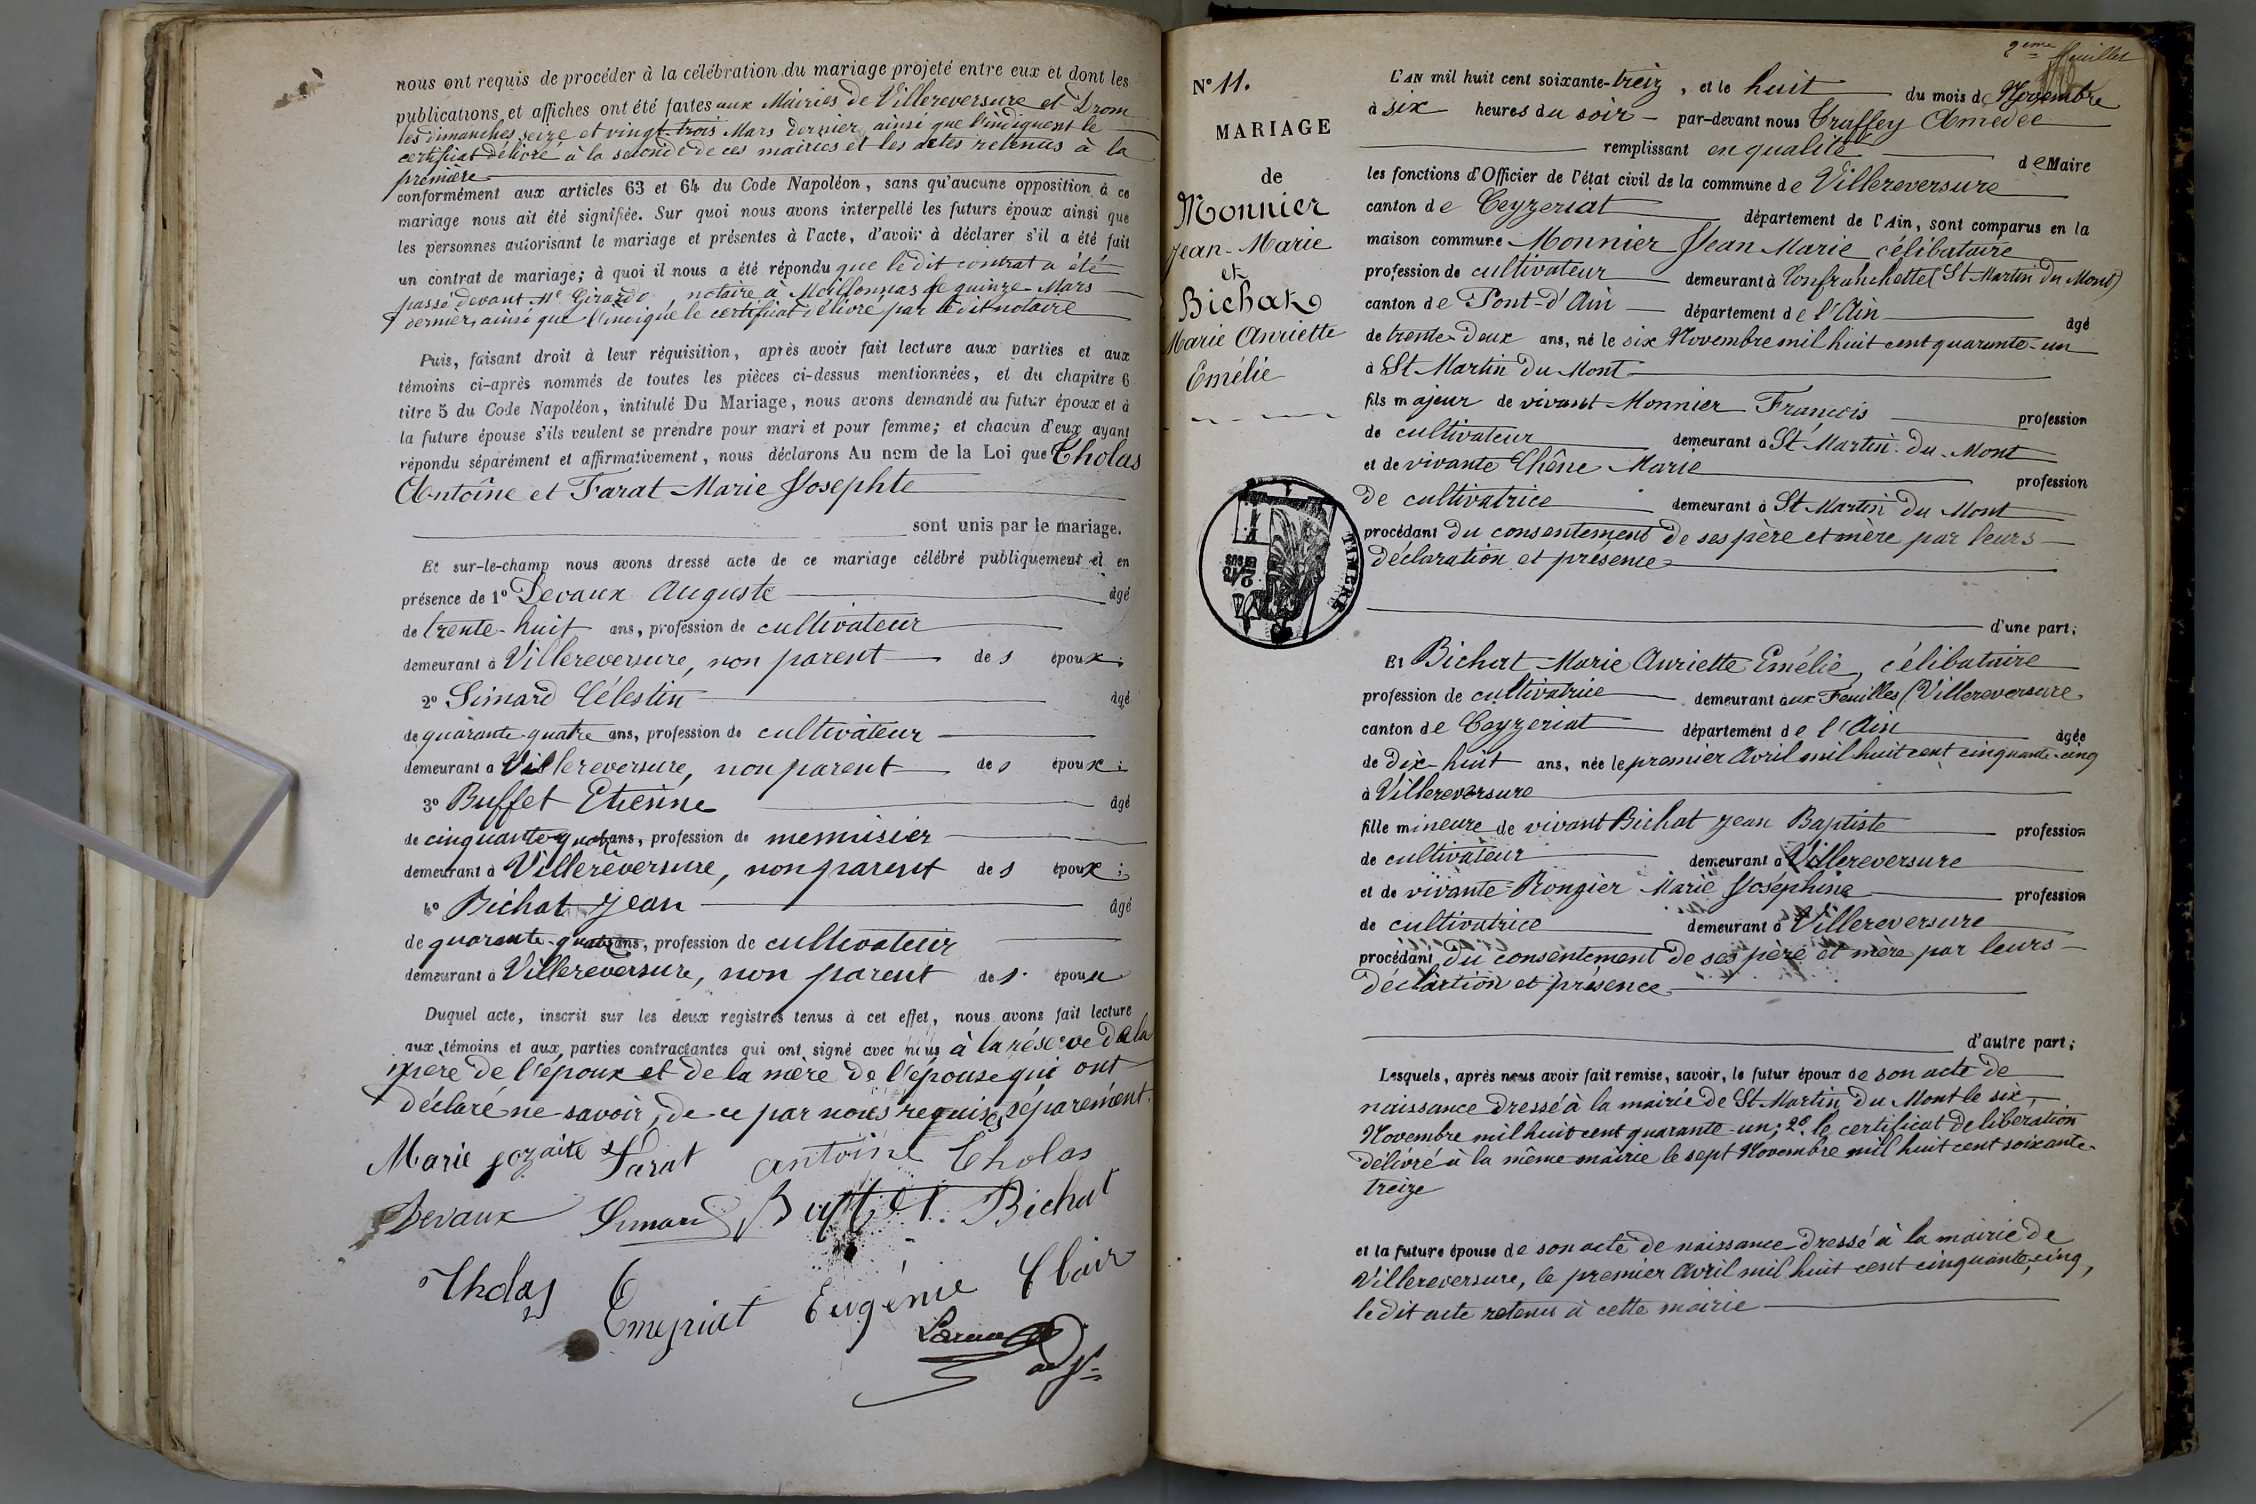 nous ont requis de procéder à la célébration du mariage projeté entre eux et dont les
publications et affiches ont été faites aux Mairies de Villereversure et Drom
les dimanches seize et vingt-trois Mars dernier ainsi que l'indiquent le
certificat délivré à la seconde de ces mairies et les actes retenus à la
première
conformément aux articles 63 et 64 du Code Napoléon, sans qu'aucune opposition à ce
mariage nous ait été signifiée. Sur quoi nous avons interpellé les futurs époux ainsi que
les personnes autorisant le mariage et présentes à l'acte, d'avoir à déclarer s'il a été fait
un contrat de mariage; à quoi il nous a été répondu que le dit contrat a été
passé devant Me Girardo, notaire à Meillonnas le quinze Mars
dernier, ainsi que l'indique le certificat délivré par le dit notaire
Puis, faisant droit à leur réquisition, après avoir fait lecture aux parties et aux
témoins ci-après nommés de toutes les pièces ci-dessus mentionnées, et du chapitre 6
titre 5 du Code Napoléon, intitulé Du Mariage, nous avons demandé au futur époux et à
la future épouse s'ils veulent se prendre pour mari et pour femme; et chacun d'eux ayant
répondu séparément et affirmativement, nous déclarons Au nom de la Loi que Tholas
Antoîne et Farat Marie Josephte
sont unis par le mariage.
Et sur-le-champ nous avons dressé acte de ce mariage célébré publiquement et en
présence de 1º Devaux Auguste âgé
de trente-huit ans, profession de cultivateur
demeurant à Villereversure, non parent des époux;
2º Simard Célestin âgé
de quarante-quatre ans, profession de cultivateur
demeurant à Villereversure, non parent des époux;
3º Buffet Etienne âgé
de cinquante-quatre ans, profession de menuisier
demeurant à Villereversure, non parent des époux;
4º Bichat Jean âgé
de quarante-quatre ans, profession de cultivateur
demeurant à Villereversure, non parent des époux
Duquel acte, inscrit sur les deux registres tenus à cet effet, nous avons fait lecture
aux témoins et aux parties contractantes qui ont signé avec nous à la réserve de la
mère de l'époux et de la mère de l'épouse qui ont
déclaré ne savoir, de ce par nous requises séparément.
Marie jozaite Farat antoine Tholas
Devaux Simard Buffet. Bichat
Tholas Emeyriat Eugénie Clair
2eme feuillet
Nº 11.
MARIAGE
de
Monnier
Jean-Marie
et
Bichat
Marie Anriette
Emélie
TIMBRE
L'AN mil huit cent soixante-treiz, et le huit du mois de Novembre
à six heures du soir par-devant nous Truffey Amédée
remplissant en qualité de Maire
les fonctions d'Officier de l'état civil de la commune de Villereversure
canton de Ceyzeriat département de l'Ain, sont comparus en la
maison commune Monnier Jean Marie célibataire
profession de cultivateur demeurant à Confranchette (St Martin du Mont)
canton de Pont-d'Ain département de l'Ain âgé
de trente-deux ans, né le six Novembre mil huit cent quarante-un
à St Martin du Mont
fils majeur de vivant Monnier François profession
de cultivateur demeurant à St Martin du Mont
et de vivante Chêne Marie profession
de cultivatrice demeurant à St Martin du Mont
procédant du consentement de ses père et mère par leurs
déclaration et présence
d'une part;
Et Bichat Marie Anriette Emélie, célibataire
profession de cultivatrice demeurant aux Feuilles (Villereversure
canton de Ceyzeriat département de l'Ain âgée
de dix-huit ans, née le premier Avril mil huit cent cinquante-cinq
à Villereversure
fille mineure de vivant Bichat Jean Baptiste profession
de cultivateur demeurant à Villereversure
et de vivante Rongier Marie Joséphine profession
de cultivatrice demeurant à Villereversure
procédant du consentement de ses père et mère par leurs
déclartion et présence
d'autre part;
Lesquels, après nous avoir fait remise, savoir, le futur époux de son acte de
naissance dressé à la mairie de St Martin du Mont le six
Novembre mil huit cent quarante-un; 2º. le certificat de libération
délivré à la même mairie le sept Novembre mil huit cent soixante-
treize
et la future épouse de son acte de naissance dressé à la mairie de
Villereversure, le premier Avril mil huit cent cinquante-cinq,
le dit acte retenu à cette mairie